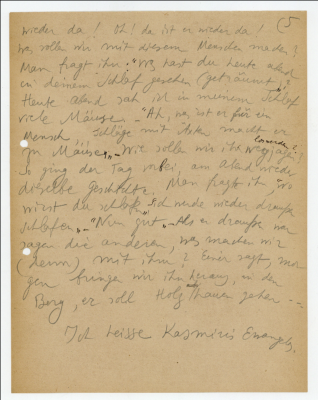 (5
wieder da! Oh! da ist er wieder da!
was sollen wir mit diesem Menschen machen?
Man fragt ihn: "Was hast du heute abend
in deinem Schlaf gesehen (geträumt)?"
Heute Abend sah ich in meinem Schlaf
viele Mäuse. - "Ah, was ist er für ein
Mensch Schläge mit Axten macht er
zu Mäuse" - Wie sollen wir ihn wegjagen?
So ging der Tag vorbei, am abend wieder
dieselbe Geschichte. Man fragte ihn wo
wirst du schlafen? Ich werde wieder draussen
schlafen" - "Nun gut" - Als er draussen war
sagen die anderen, was machen wir
(denn) mit ihm? Einer sagt, mor
gen bringen wir ihn heraus, in den
Berg, er soll Holz hauen gehen --
Ich heisse Kasmiris Evangelos.